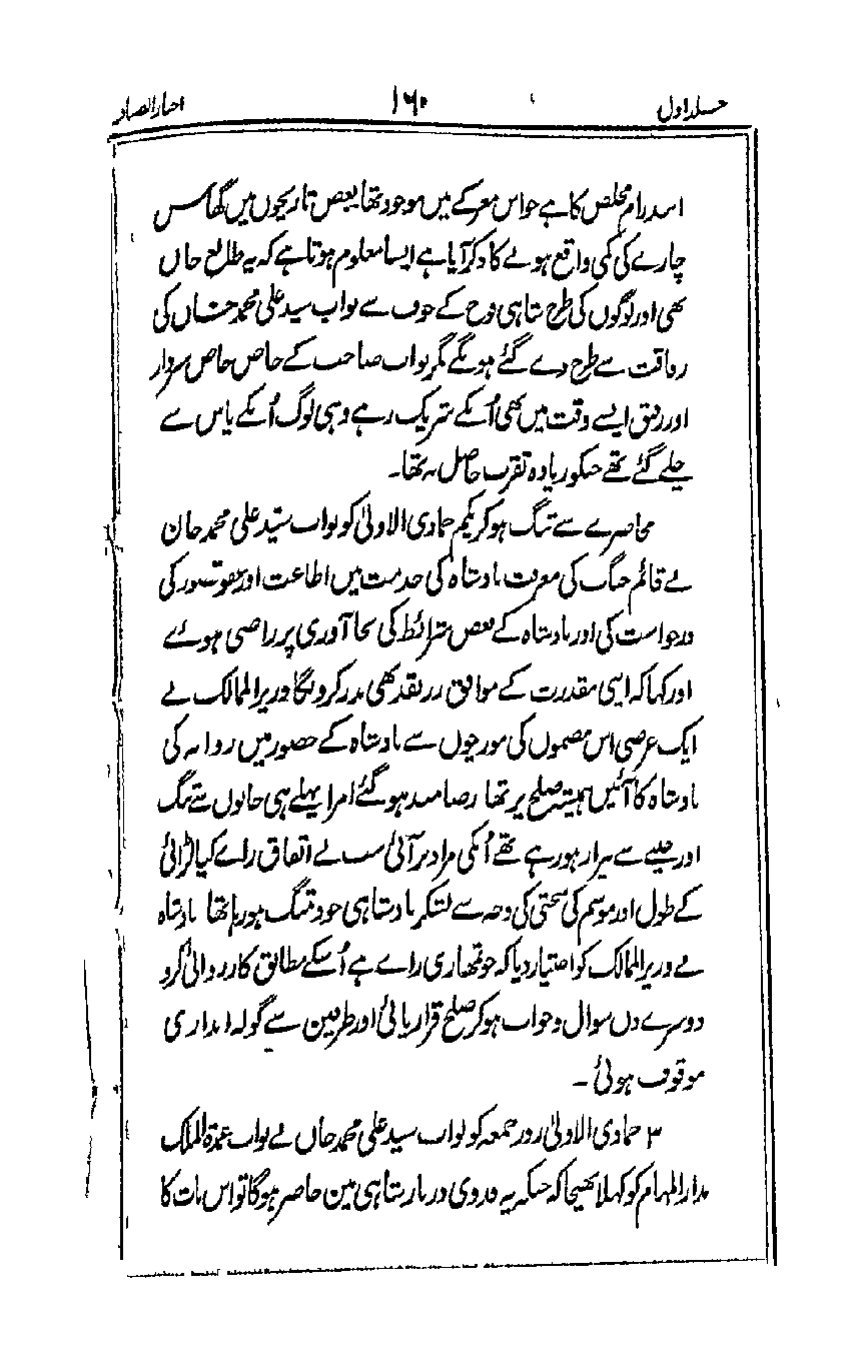 جلد اول ۱۶۰ اخبار الصنادید
انند رام مخلص کا ہے جو اس معرکے میں موجود تھا بعض تاریخوں میں گھانس
چارے کی کمی واقع ہونے کا ذکر آیا ہے ایسا معلوم ہوتا ہے کہ یہ طالع خاں
بھی اور لوگوں کی طرح شاہی فوج کے خوف سے نواب سید علی محمد خاں کی
رفاقت سے طرح دے گئے ہونگے مگر نواب صاحب کے خاص خاص سردار
اور رفیق ایسے وقت میں بھی اُنکے شریک رہے وہی لوگ اُنکے پاس سے
چلے گئے تھے جنکو زیادہ تقرب حاصل نہ تھا۔
محاصرے سے تنگ ہو کر یکم جمادی الاولیٰ کو نواب سیّد علی محمد خان
نے قائم جنگ کی معرفت بادشاہ کی خدمت میں اطاعت اور عفو قصور کی
درخواست کی اور بادشاہ کے بعض شرائط کی بجا آوری پر راضی ہوئے
اور کہا کہ اپنی مقدرت کے موافق زر نقد بھی نذر کرونگا وزیر الممالک نے
ایک عرضی اس مضمون کی مورچوں سے بادشاہ کے حضور میں روانہ کی
بادشاہ کا آئین ہمیشہ صلح پر تھا رضامند ہو گئے امرا پہلے ہی جانوں سے تنگ
اور جینے سے بیزار ہو رہے تھے اُنکی مراد بر آئی سب نے اتفاق رائے کیا لڑائی
کے طول اور موسم کی سختی کی وجہ سے لشکر بادشاہی خود تنگ ہو رہا تھا بادشاہ
نے وزیر الممالک کو اختیار دیا کہ جو تمھاری راے ہے اُسکے مطابق کارروائی کرو
دوسرے دن سوال و جواب ہو کر صلح قرار پائی اور طرفین سے گولہ اندازی
موقوف ہوئی۔
۳ جمادی الاولیٰ روز جمعہ کو نواب سید علی محمد خاں نے نواب عمدۃ الملک
مدار المہام کو کہلا بھیجا کہ جبکہ یہ فدوی دربار شاہی مین حاضر ہوگا تو اس بات کا